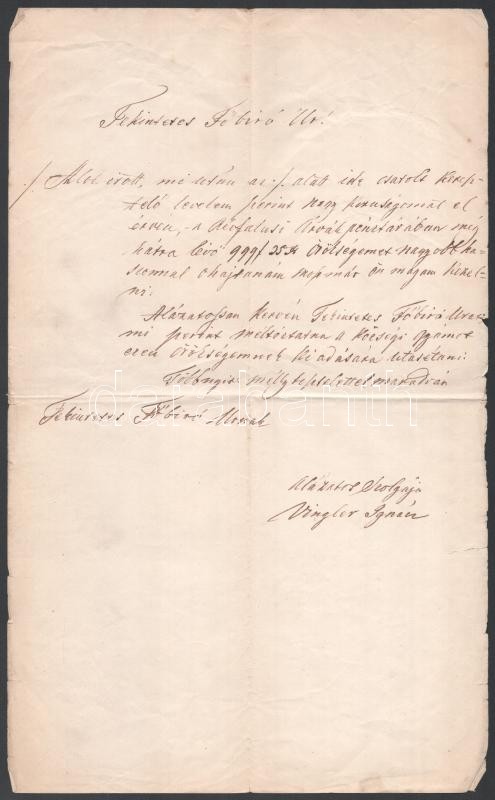 Tekintetes Főbiró Úr!
./. Alol irott, mi után az ./. alatt ide csatolt Keresz
levelem szerint nagy korusegomat el
érven, a árvák pénztárában még
hátra lévő 999f 35 Xr Örökségemet nagyobb ha
szonnal ohajtanám már ön magam kezel
ni.
Alázatossan kervén Tekintetes Főbiró Urat
mi szerint méltóztatna a községi gyámot
ezen örökségemnek ki adására utasitani.
mélly tisztelettel maradván
Tekintetes Főbiró Urnak
Alázatos Szolgája
Vingler Ignácz